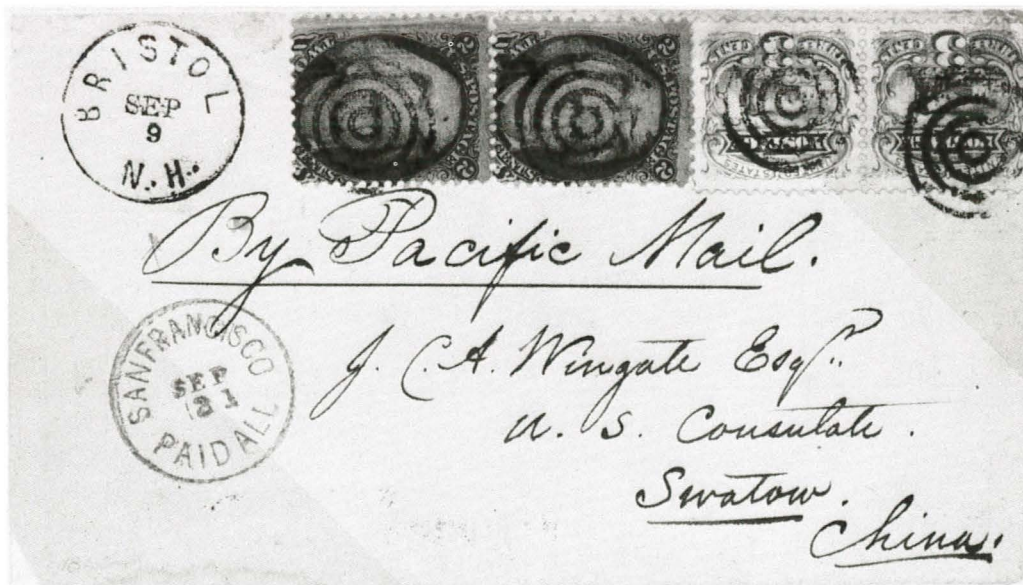 BRISTOL
SEP
9
N. H.
By Pacific Mail.
SAN FRANCISCO
SEP
21
PAID ALL
J. C. A. Wingate Esqr.
U. S. Consulate.
Swatow.
China.